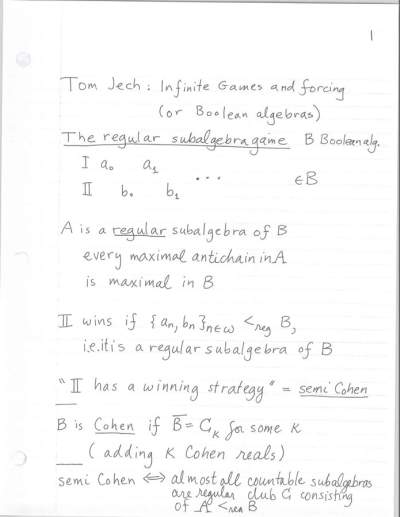 1
Tom Jech: Infinite Games and forcing
(or Boolean algebras)
The regular subalgebra game B Boolean alg.
I a₀ a₁
... ∈B
II b₀ b₁
A is a regular subalgebra of B
every maximal antichain in A
is maximal in B
II wins if {aₙ, bₙ}ₙ∈ω <reg B,
i.e. it is a regular subalgebra of B
"II has a winning strategy" = semi Cohen
B is Cohen if B̅ = Cκ for some κ
(adding κ Cohen reals)
semi Cohen ⟺ almost all countable subalgebras
are regular club C consisting
of A <reg B